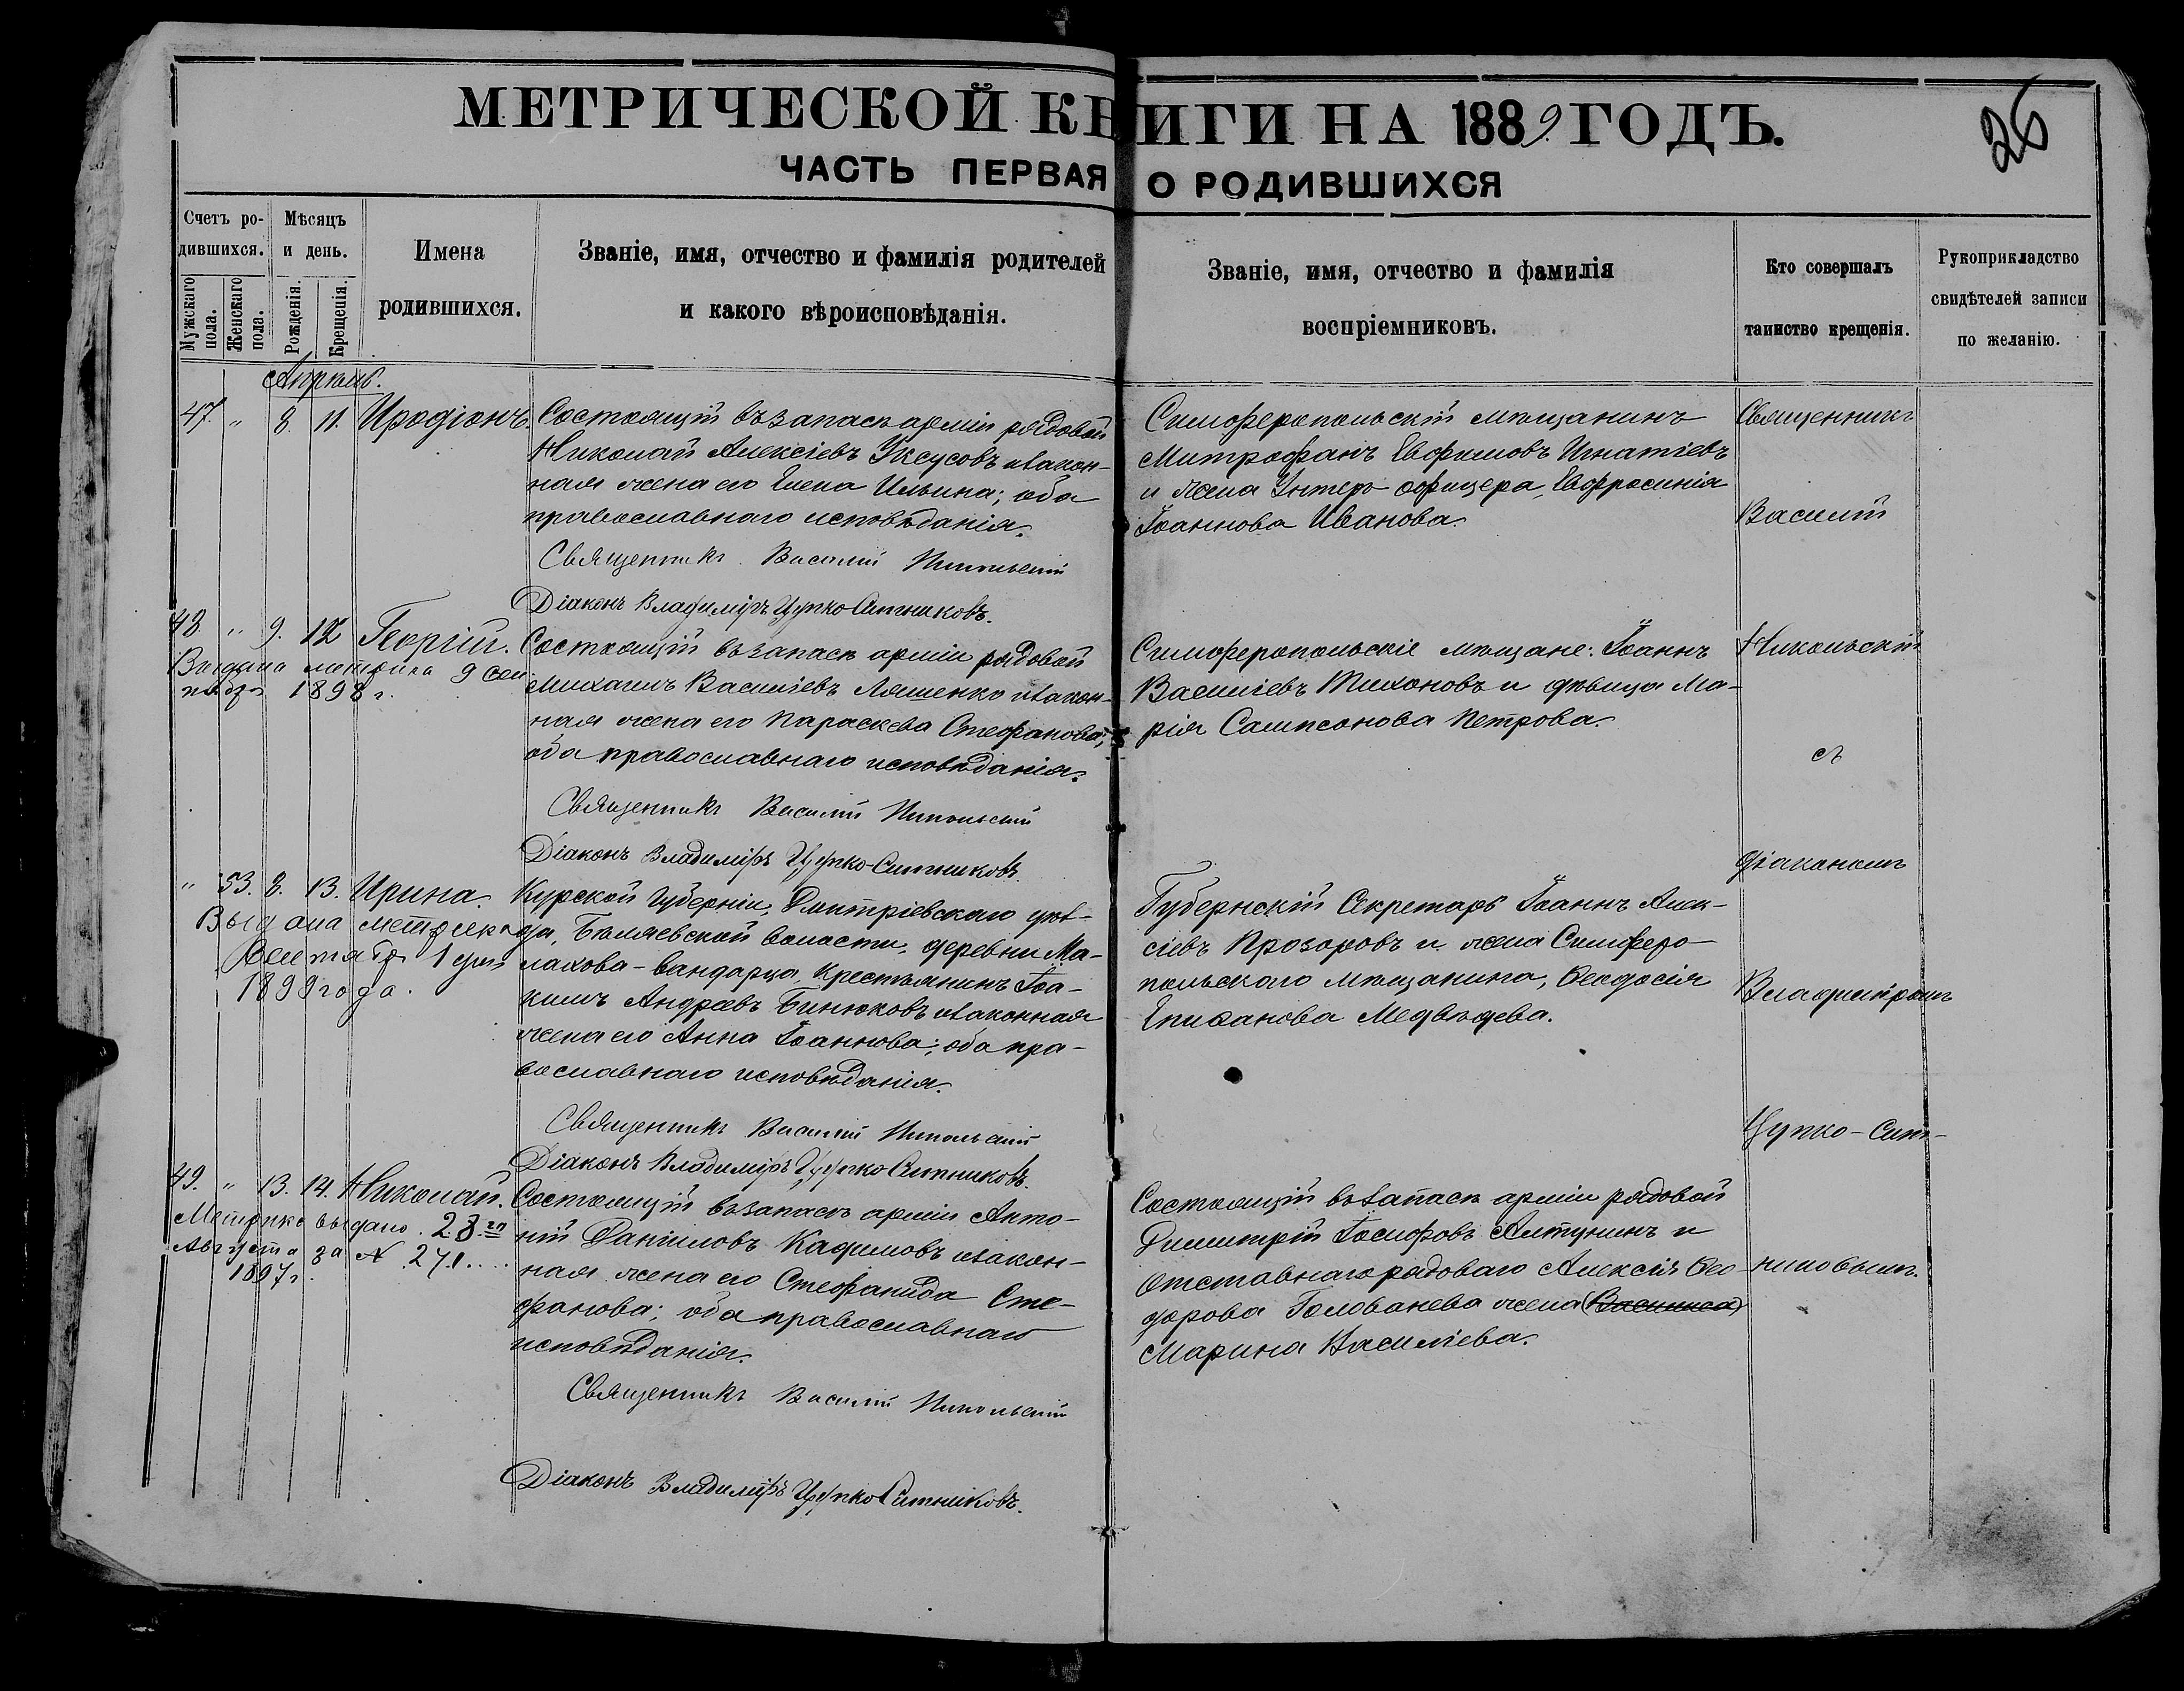 МЕТРИЧЕСКОЙ КНИГИ НА 1889. ГОДЪ.
26
ЧАСТЬ ПЕРВАЯ О РОДИВШИХСЯ
Счетъ ро-
дившихся.
Мужскаго пола.
Женскаго пола.
Мѣсяцъ
и день.
Рожденія.
Крещенія.
Имена
родившихся.
Званіе, имя, отчество и фамилія родителей
и какого вѣроисповѣданія.
Званіе, имя, отчество и фамилія
воспріемниковъ.
Кто совершалъ
таинство крещенія.
Рукоприкладство
свидѣтелей записи
по желанію.
Апрѣль.
47. " 8. 11. Иродіонъ.
Состоящій въ запасѣ арміи рядовой
Николай Алексіевъ Уксусовъ и закон-
ная жена его Елена Ильина; оба
православнаго исповѣданія.
Священникъ Василій Никольскій
Діаконъ Владиміръ Цупко-Ситниковъ.
Симферопольскій мѣщанинъ
Митрофанъ Евфимовъ Игнатіевъ
и жена Унтеръ-офицера, Евфросинія
Іоаннова Иванова.
48. " 9. 12 Георгій.
Выдана метрика 9 сен
тября 1898 г.
Состоящій въ запасѣ арміи рядовой
Михаилъ Василіевъ Ляшенко и закон-
ная жена его Параскева Стефанова;
оба православнаго исповѣданія.
Священникъ Василій Никольскій
Діаконъ Владиміръ Цупко-Ситниковъ.
Симферопольскіе мѣщане: Іоаннъ
Василіевъ Тихоновъ и дѣвица Ма-
рія Сампсонова Петрова.
" 53. 8. 13. Ирина.
Выдана метрика
Сентября 1 дня
1899 года.
Курской Губерніи, Дмитріевскаго уѣз-
да, Бѣляевской волости, деревни Ма-
лахова-вандарца крестьянинъ Іоа-
кимъ Андреевъ Бинюковъ и законная
жена его Анна Іоаннова; оба пра-
вославнаго исповѣданія.
Священникъ Василій Никольскій
Діаконъ Владиміръ Цупко Ситниковъ.
Губернскій Секретарь Іоаннъ Алек-
сіевъ Прозоровъ и жена Симферо-
польскаго мѣщанина, Ѳеодосія
Епифанова Медвѣдева.
49. " 13. 14. Николай.
Метрика выдано 28го
Августа за № 271....
1897 г.
Состоящій въ запасѣ арміи Анто-
ній Даніиловъ Кадимовъ и закон-
ная жена его Стефанида Сте-
фанова; оба православнаго
исповѣданія.
Священникъ Василій Никольскій
Діаконъ Владиміръ Цупко Ситниковъ.
Состоящій въ запасѣ арміи рядовой
Димитрій Іосифовъ Алтунинъ и
отставнаго рядоваго Алексія Ѳео-
дорова Голованева жена (Василиса)
Марина Василіева.
Священникъ
Василій
Никольскій
съ
діакономъ
Владиміромъ
Цупко-Сит-
никовымъ.